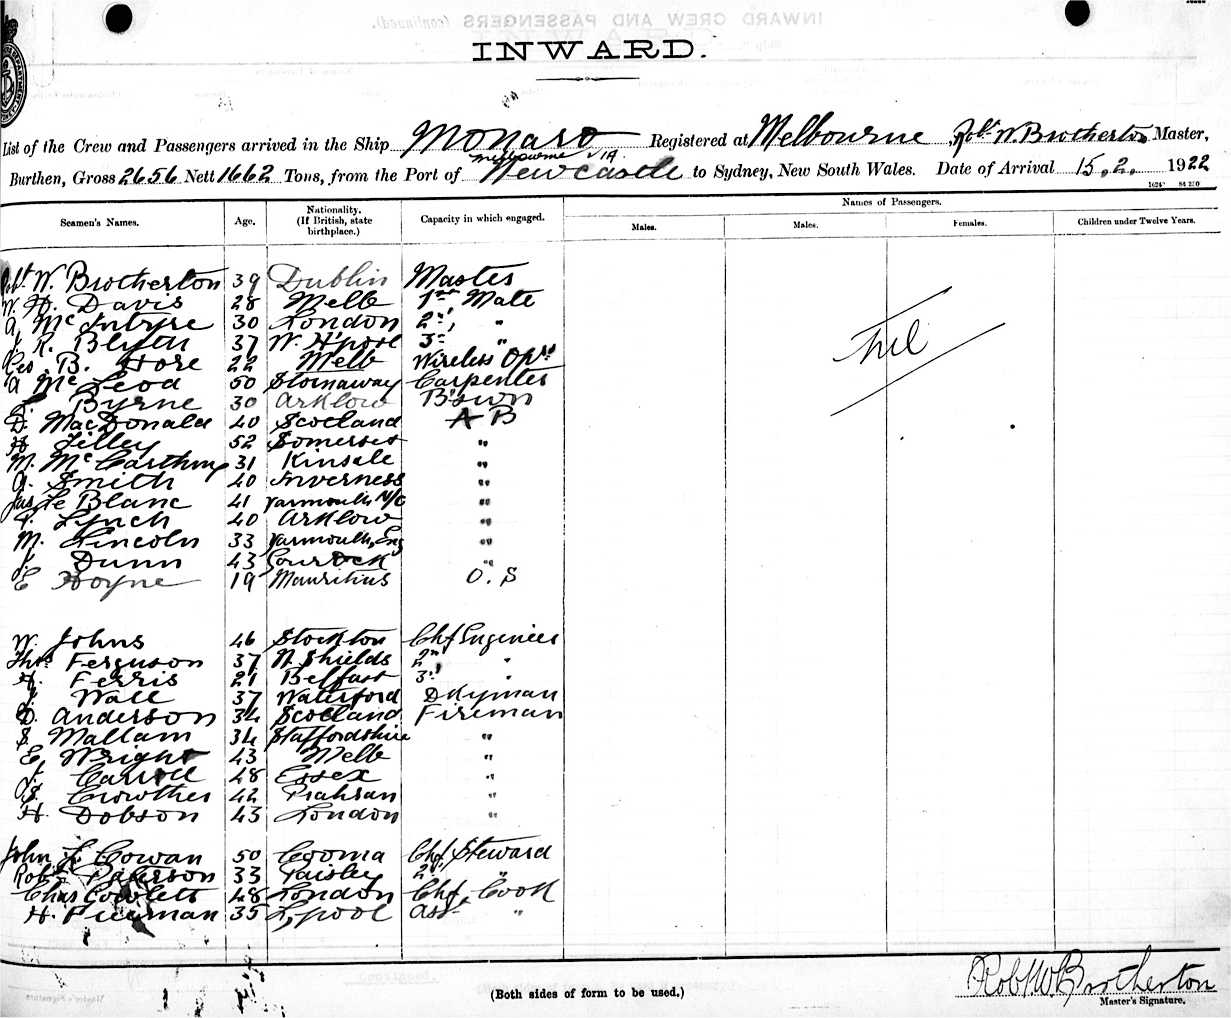 INWARD.
List of the Crew and Passengers arrived in the Ship Monaro Registered at Melbourne, Robt. W. Brotherton Master,
Melbourne via
Burthen, Gross 2656 Nett 1662 Tons, from the Port of Newcastle to Sydney, New South Wales. Date of Arrival 15.2. 1922
Seamen's Names. Age. Nationality. (If British, state birthplace.) Capacity in which engaged. Names of Passengers.
Males. Males. Females. Children under Twelve Years.
Robt W. Brotherton 39 Dublin Master
W. H. Davis 28 Melb 1st Mate
A. McIntyre 30 London 2nd, "
J. R. Blyth 37 W. H'pool 3rd "
Geo. B. Hore 22 Melb Wireless Opr
A McLeod 50 Stornaway Carpenter
Byrne 30 Arklow B'swn
D. MacDonald 40 Scotland A B
H Tilley 52 Somerset "
M. McCarthy 31 Kinsale "
A. Smith 40 Inverness "
Jas Le Blanc 41 Yarmouth N/S "
Lynch 40 Arklow "
M. Lincoln 33 Yarmouth, Eng "
J. Dunn 43 Gourock "
E Hoyne 19 Mauritius O. S
Nil
W. Johns 46 Stockton Chf Engineer
Thos. Ferguson 37 N Shields 2nd "
H. Ferris 21 Belfast 3rd "
J. Wall 37 Waterford Dkyman
D. Anderson 34 Scotland Fireman
S. Mallam 34 Staffordshire "
E. Wright 43 Melb "
J. Carroll 48 Essex "
Crowther 42 Prahran "
H. Dobson 43 London "
John L. Cowan 50 Cooma Chf, Steward
Robt Paterson 33 Paisley 2nd "
Chas Cowlett 48 London Chf, Cook
H. Pierman 35 L'pool Asst "
Robt W Brotherton
Master's Signature.
(Both sides of form to be used.)